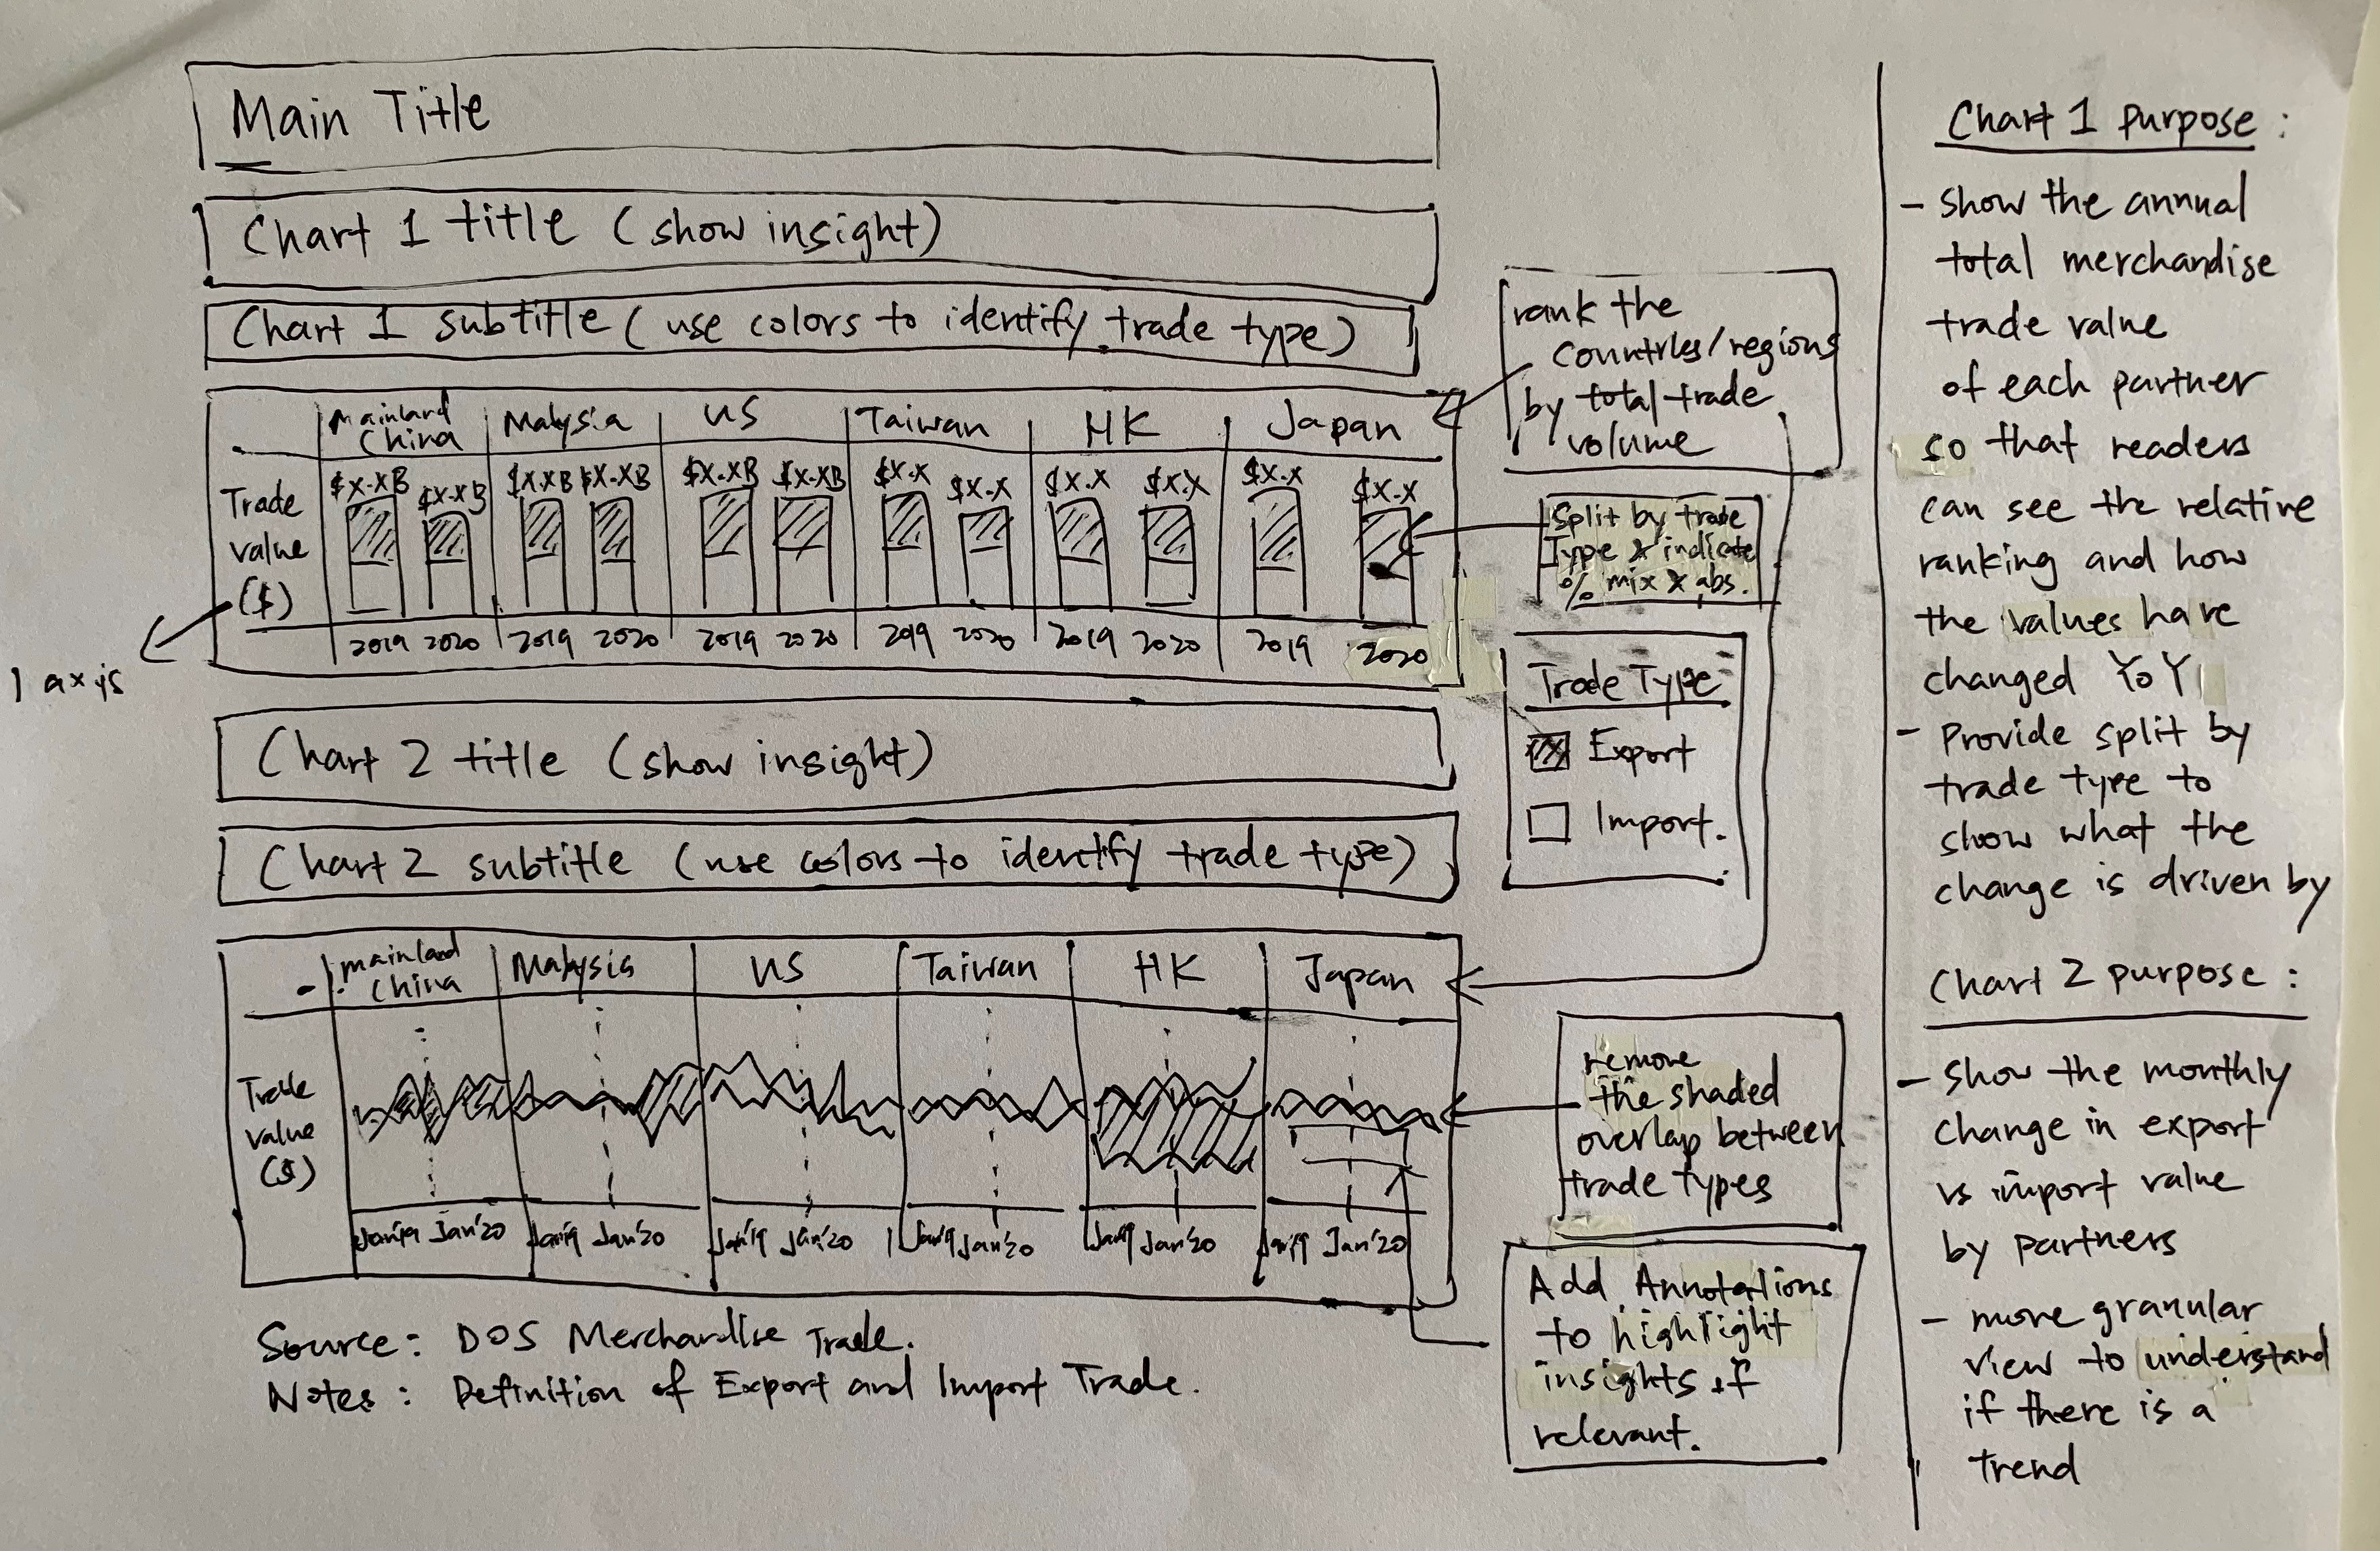 Main Title
Chart 1 title (show insight)
Chart 1 subtitle (use colors to identify trade type)
Mainland China
Malysia
US
Taiwan
HK
Japan
Trade
value
($)
$X.XB
$X.XB
$X.XB
$X.XB
$X.XB
$X.XB
$X.X
$X.X
$X.X
$X.X
$X.X
$X.X
2019 2020
2019 2020
2019 2020
2019 2020
2019 2020
2019 2020
1 axis
rank the
countries/regions
by total trade
volume
Split by trade
Type & indicate
% mix & abs.
Trade Type
Export
Import.
Chart 2 title (show insight)
Chart 2 subtitle (use colors to identify trade type)
mainland
China
Malaysia
US
Taiwan
HK
Japan
Trade
value
($)
Jan'19 Jan'20
Jan'19 Jan'20
Jan'19 Jan'20
Jan'19 Jan'20
Jan'19 Jan'20
Jan'19 Jan'20
remove
the shaded
overlap between
trade types
Add Annotations
to highlight
insights if
relevant.
Source: DOS Merchandise Trade.
Notes: Definition of Export and Import Trade.
Chart 1 purpose:
- show the annual
total merchandise
trade value
of each partner
so that readers
can see the relative
ranking and how
the values have
changed YoY
- Provide split by
trade type to
show what the
change is driven by
Chart 2 purpose:
- show the monthly
change in export
vs import value
by partners
- more granular
view to understand
if there is a
trend